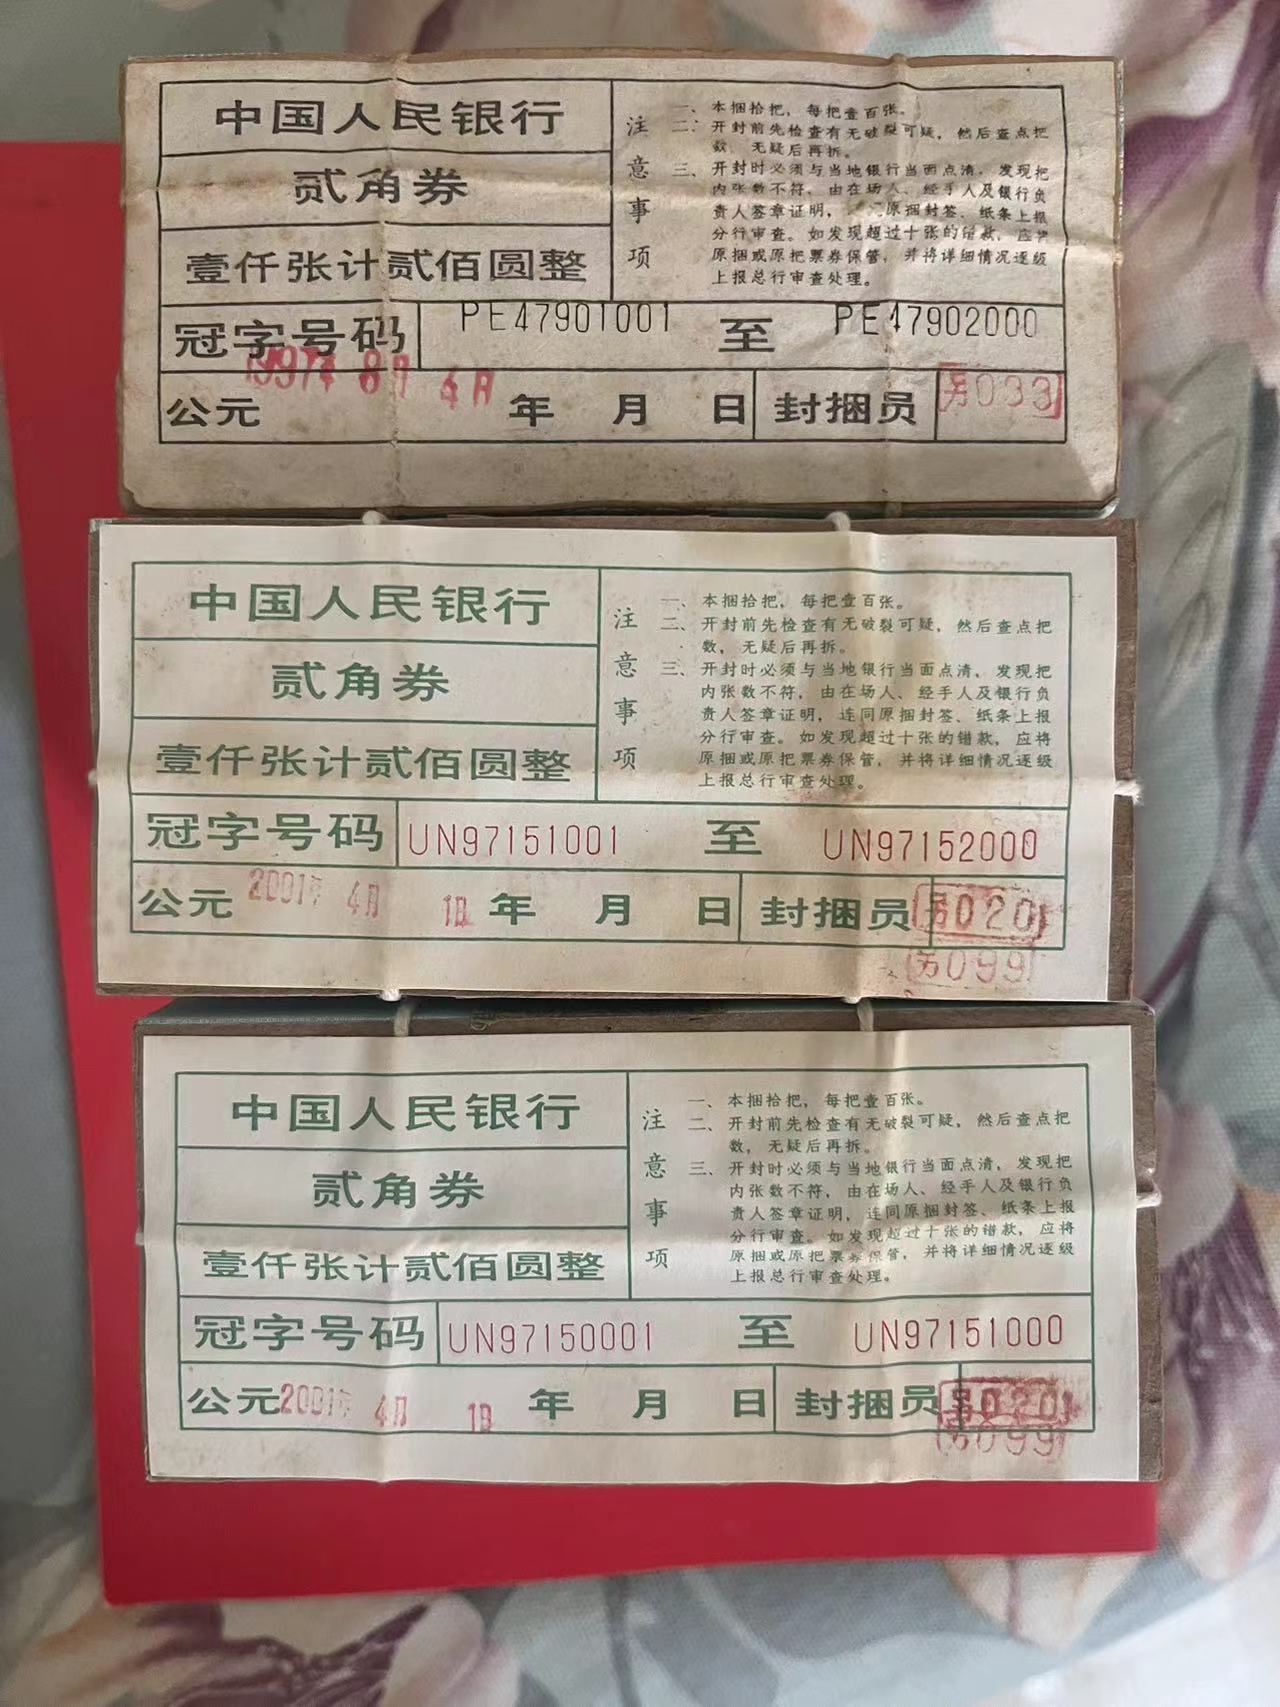 中国人民银行
贰角券
壹仟张计贰佰圆整
注意事项
一、本捆拾把，每把壹百张。
二、开封前先检查有无破裂可疑，然后查点把
数，无疑后再拆。
三、开封时必须与当地银行当面点清，发现把
内张数不符，由在场人、经手人及银行负
责人签章证明，原捆封签、纸条上报
分行审查。如发现超过十张的错款，应将
原捆或原把票券保管，并将详细情况逐级
上报总行审查处理。
冠字号码 PE47901001 至 PE47902000
1997年 8月 4日
公元 年 月 日 封捆员 苏033
中国人民银行
贰角券
壹仟张计贰佰圆整
注意事项
一、本捆拾把，每把壹百张。
二、开封前先检查有无破裂可疑，然后查点把
数，无疑后再拆。
三、开封时必须与当地银行当面点清，发现把
内张数不符，由在场人、经手人及银行负
责人签章证明，连同原捆封签、纸条上报
分行审查。如发现超过十张的错款，应将
原捆或原把票券保管，并将详细情况逐级
上报总行审查处理。
冠字号码 UN97151001 至 UN97152000
公元 2001年 4月 1日 年 月 日 封捆员 020
099
中国人民银行
贰角券
壹仟张计贰佰圆整
注意事项
一、本捆拾把，每把壹百张。
二、开封前先检查有无破裂可疑，然后查点把
数，无疑后再拆。
三、开封时必须与当地银行当面点清，发现把
内张数不符，由在场人、经手人及银行负
责人签章证明，连同原捆封签、纸条上报
分行审查。如发现超过十张的错款，应将
原捆或原把票券保管，并将详细情况逐级
上报总行审查处理。
冠字号码 UN97150001 至 UN97151000
公元 2001年 4月 1日 年 月 日 封捆员 020
099